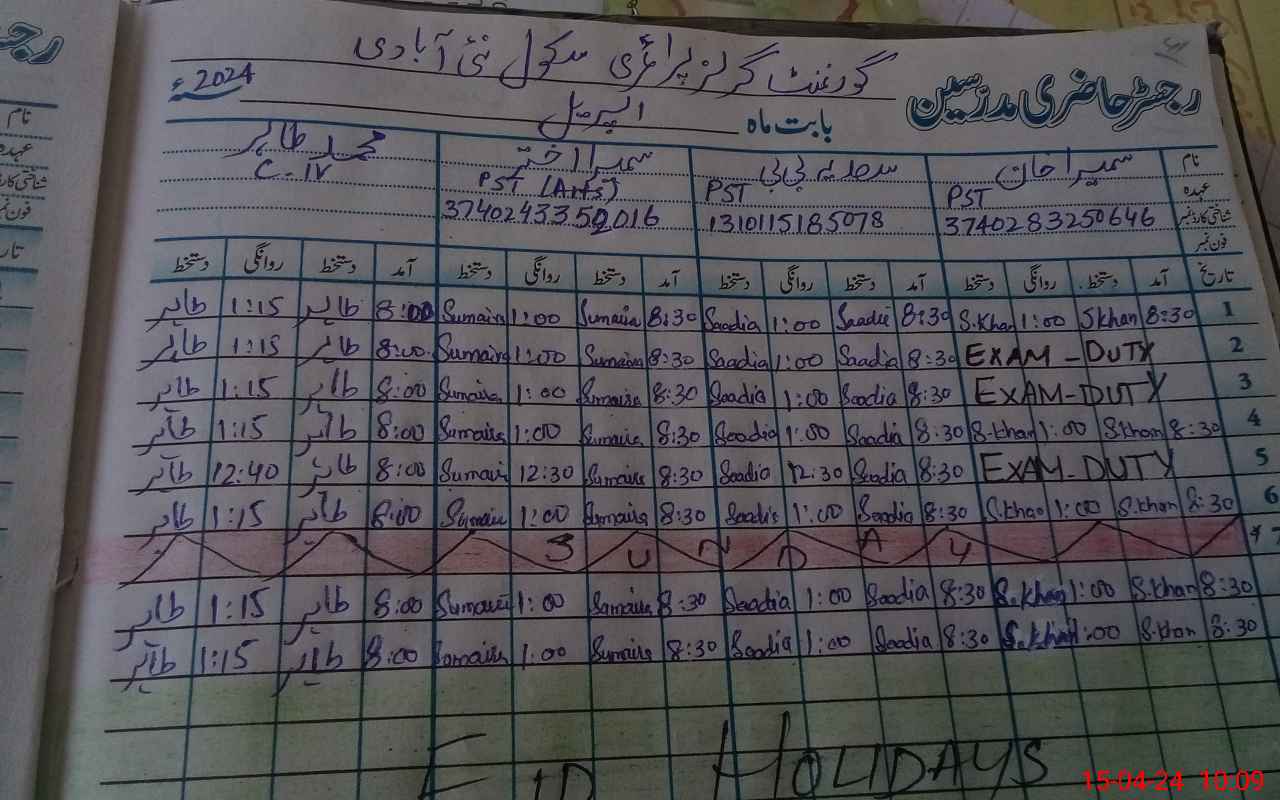 گورنمنٹ گرلز پرائمری سکول نئی آبادی
رجسٹر حاضری مدرسین
بابت ماہ اپریل 2024ء
نام سمیرا خان سعدیہ بی بی سمیرا اختر محمد طاہر
عہدہ PST PST PST (Arts) C-IV
شناختی کارڈ نمبر 3740283250646 1310115185078
فون نمبر
تاریخ آمد دستخط روانگی دستخط آمد دستخط روانگی دستخط آمد دستخط روانگی دستخط آمد دستخط روانگی دستخط
1 8:30 S.Khan 1:00 S.Khan 8:30 Saadia 1:00 Saadia 8:30 Sumaira 1:00 Sumaira 8:00 طاہر 1:15 طاہر
2 EXAM-DUTY 8:30 Saadia 1:00 Saadia 8:30 Sumaira 1:00 Sumaira 8:00 طاہر 1:15 طاہر
3 EXAM-DUTY 8:30 Saadia 1:00 Saadia 8:30 Sumaira 1:00 Sumaira 8:00 طاہر 1:15 طاہر
4 8:30 S.Khan 1:00 S.Khan 8:30 Saadia 1:00 Saadia 8:30 Sumaira 1:00 Sumaira 8:00 طاہر 1:15 طاہر
5 EXAM-DUTY 8:30 Saadia 12:30 Saadia 8:30 Sumaira 12:30 Sumaira 8:00 طاہر 12:40 طاہر
6 8:30 S.Khan 1:00 S.Khan 8:30 Saadia 1:00 Saadia 8:30 Sumaira 1:00 Sumaira 8:00 طاہر 1:15 طاہر
7 SUNDAY
8:30 S.Khan 1:00 S.Khan 8:30 Saadia 1:00 Saadia 8:30 Sumaira 1:00 Sumaira 8:00 طاہر 1:15 طاہر
8:30 S.Khan 1:00 S.Khan 8:30 Saadia 1:00 Saadia 8:30 Sumaira 1:00 Sumaira 8:00 طاہر 1:15 طاہر
EID HOLIDAYS
15-04-24 10:09